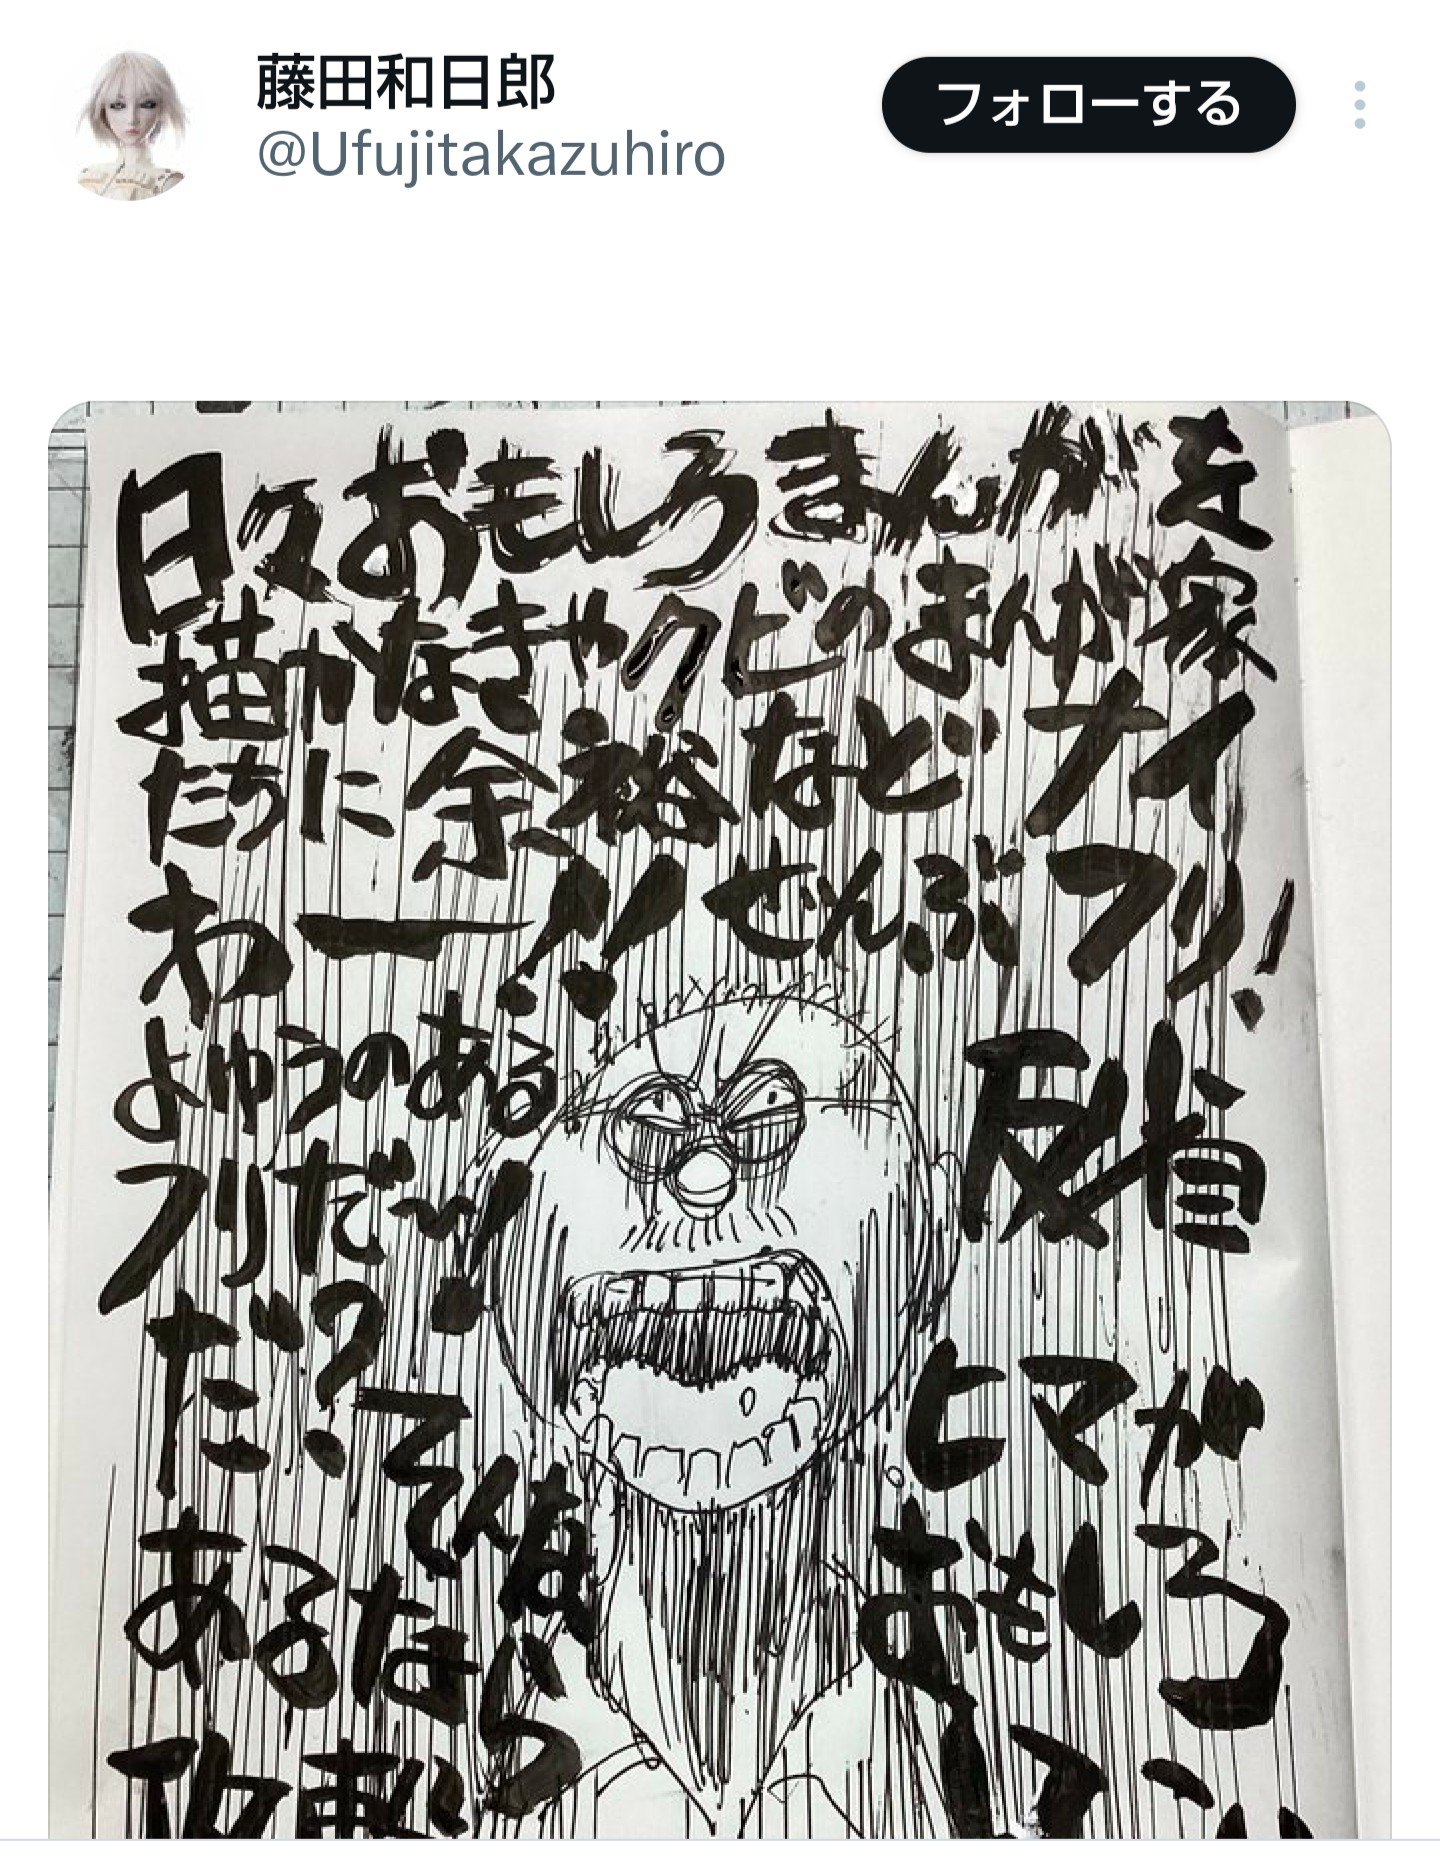 藤田和日郎
@Ufujitakazuhiro
フォローする
日々おもしろまんがを
描かなきゃクビのまんが家
たちに余裕などナイ
わー!!ぜんぶフリ!
よゆうのある
フリだーッ!
反省
ヒマが
だ?
おもしろ
あるなら